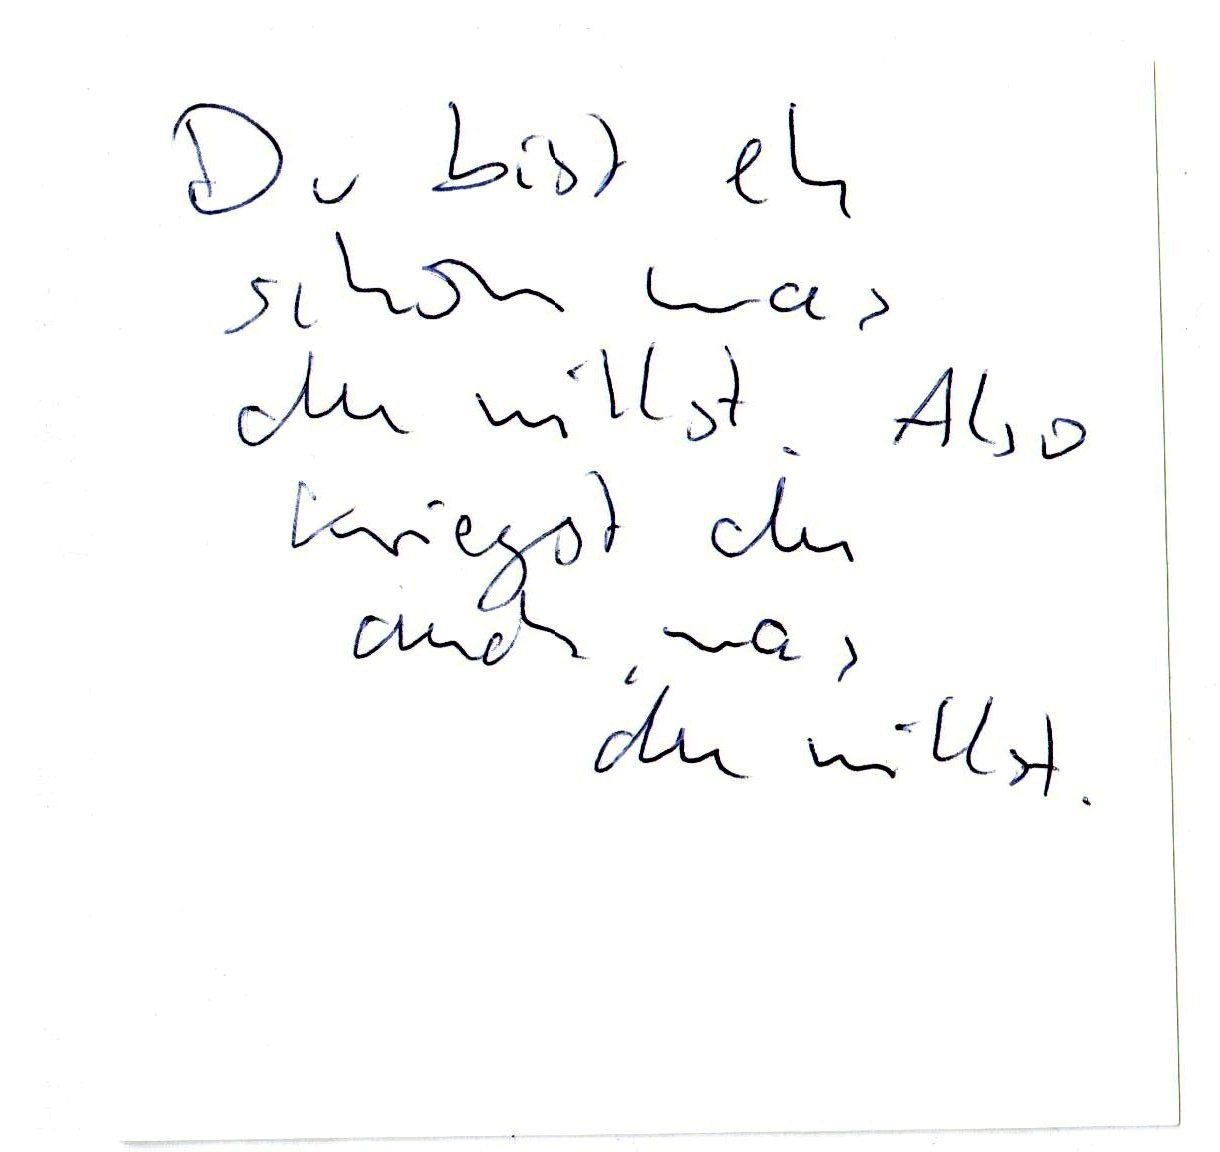 Du bist eh
schon was
du willst. Also
kriegst du
auch, was
du willst.